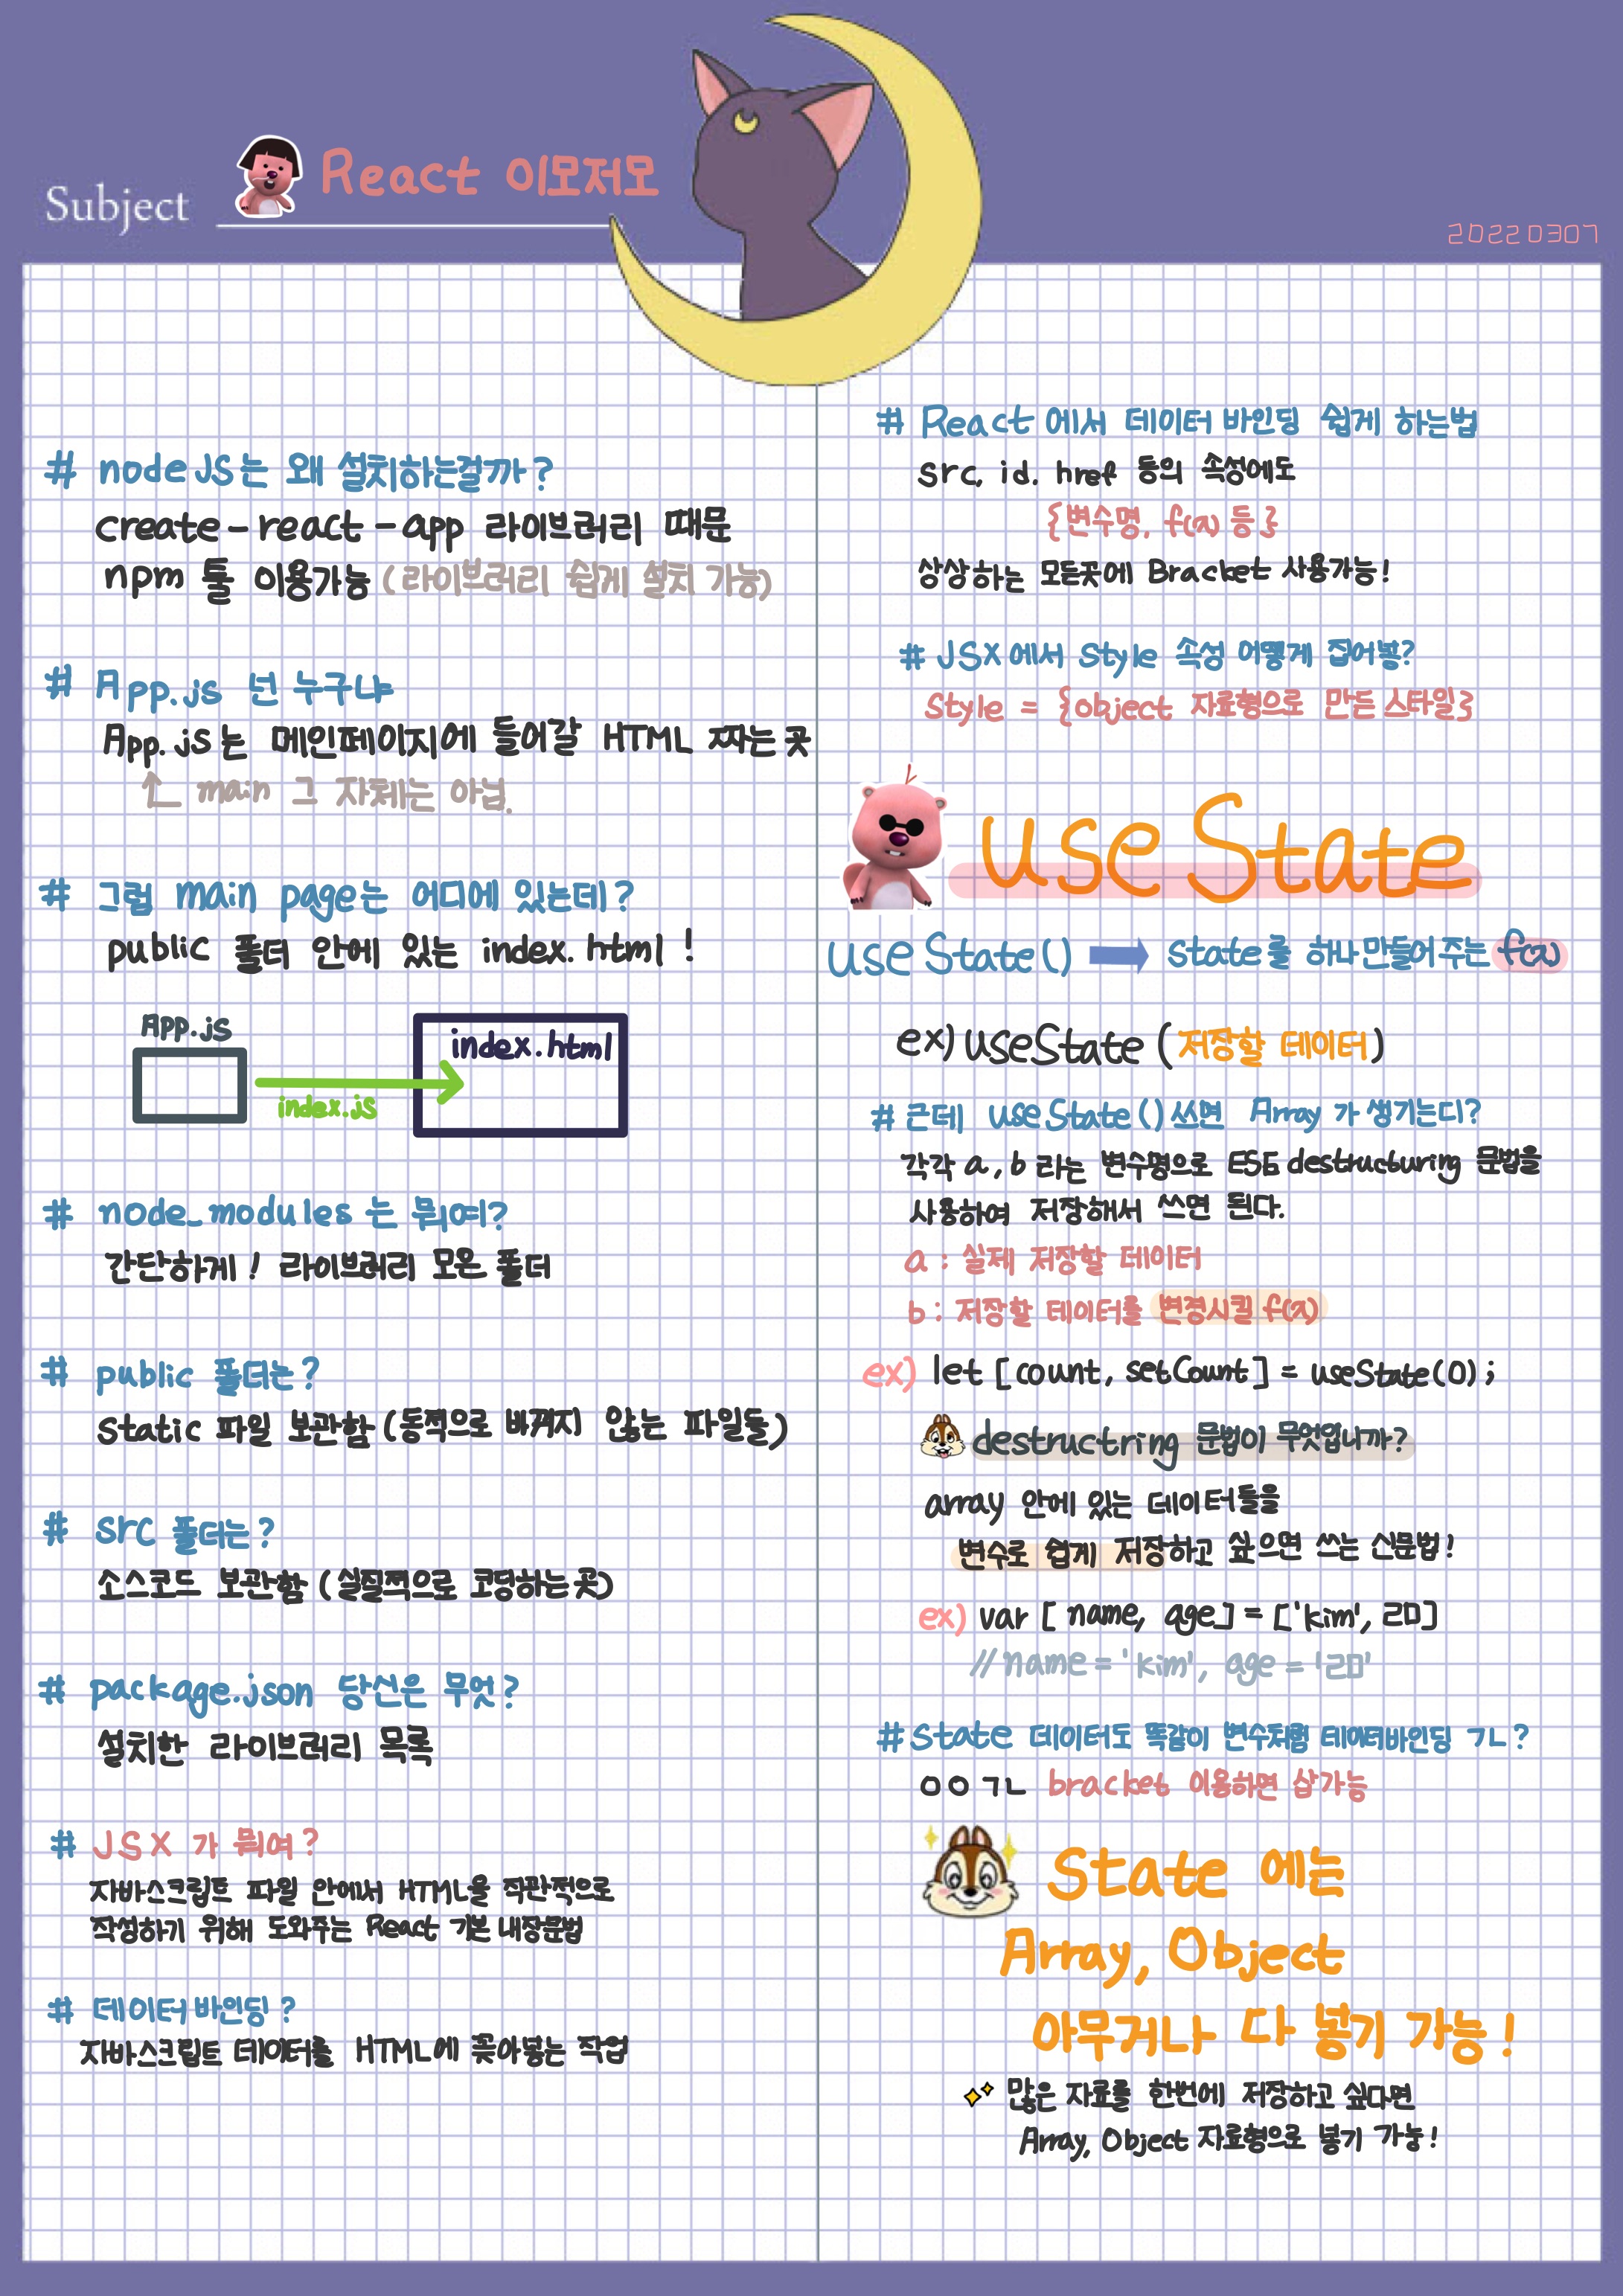 Subject
React 이모저모
20220307
# nodeJS는 왜 설치하는걸까?
create-react-app 라이브러리 때문
npm 툴 이용가능 (라이브러리 쉽게 설치 가능)
# App.js 넌 누구냐
App.js는 메인페이지에 들어갈 HTML 짜는 곳
main 그 자체는 아님.
# 그럼 main page는 어디에 있는데?
public 폴더 안에 있는 index.html!
App.js
index.html
index.js
# node_modules 는 뭐여?
간단하게! 라이브러리 모은 폴더
# public 폴더는?
Static 파일 보관함 (동적으로 바껴지지 않는 파일들)
# src 폴더는?
소스코드 보관함 (실질적으로 코딩하는곳)
# package.json 당신은 무엇?
설치한 라이브러리 목록
# JSX 가 뭐여?
자바스크립트 파일 안에서 HTML을 직관적으로
작성하기 위해 도와주는 React 기본 내장문법
# 데이터바인딩?
자바스크립트 데이터를 HTML에 꽂아넣는 작업
# React 에서 데이터 바인딩 쉽게 하는법
src, id, href 등의 속성에도
{변수명, f(x) 등}
상상하는 모든곳에 Bracket 사용가능!
# JSX에서 style 속성 어떻게 집어넣?
Style = {object 자료형으로 만든 스타일}
useState
useState() state를 하나 만들어 주는 f(x)
ex) useState (저장할 데이터)
# 근데 useState() 쓰면 Array 가 생기는디?
각각 a, b 라는 변수명으로 ES6 destructuring 문법을
사용하여 저장해서 쓰면 된다.
a : 실제 저장할 데이터
b : 저장할 데이터를 변경시킬 f(x)
ex) let [count, setCount] = useState(0);
destructring 문법이 무엇입니까?
array 안에 있는 데이터들을
변수로 쉽게 저장하고 싶으면 쓰는 신문법!
ex) var [name, age] = ['kim', 20]
//name = 'kim', age = '20'
# State 데이터도 똑같이 변수처럼 데이터바인딩 ㄱㄴ?
ㅇㅇ ㄱㄴ bracket 이용하면 쌉가능
State 에는
Array, Object
아무거나 다 넣기 가능!
많은 자료를 한번에 저장하고 싶다면
Array, Object 자료형으로 넣기 가능!